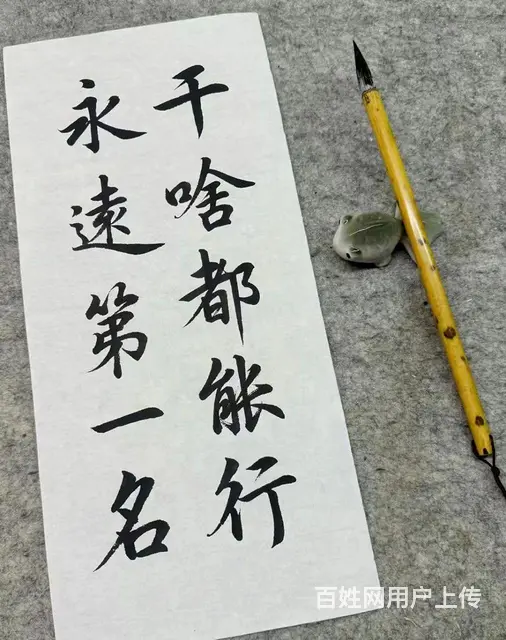 干啥都能行
永遠第一名
百姓网用户上传